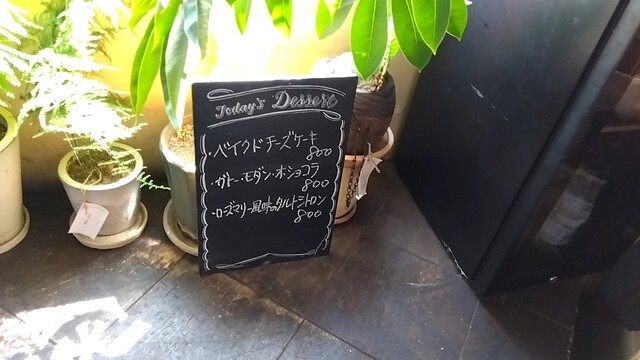 Today's Dessert
・ベイクドチーズケーキ
800
・ガトー・モダン・ホショコラ
800
・ローズマリー風味のタルトシトロン
800